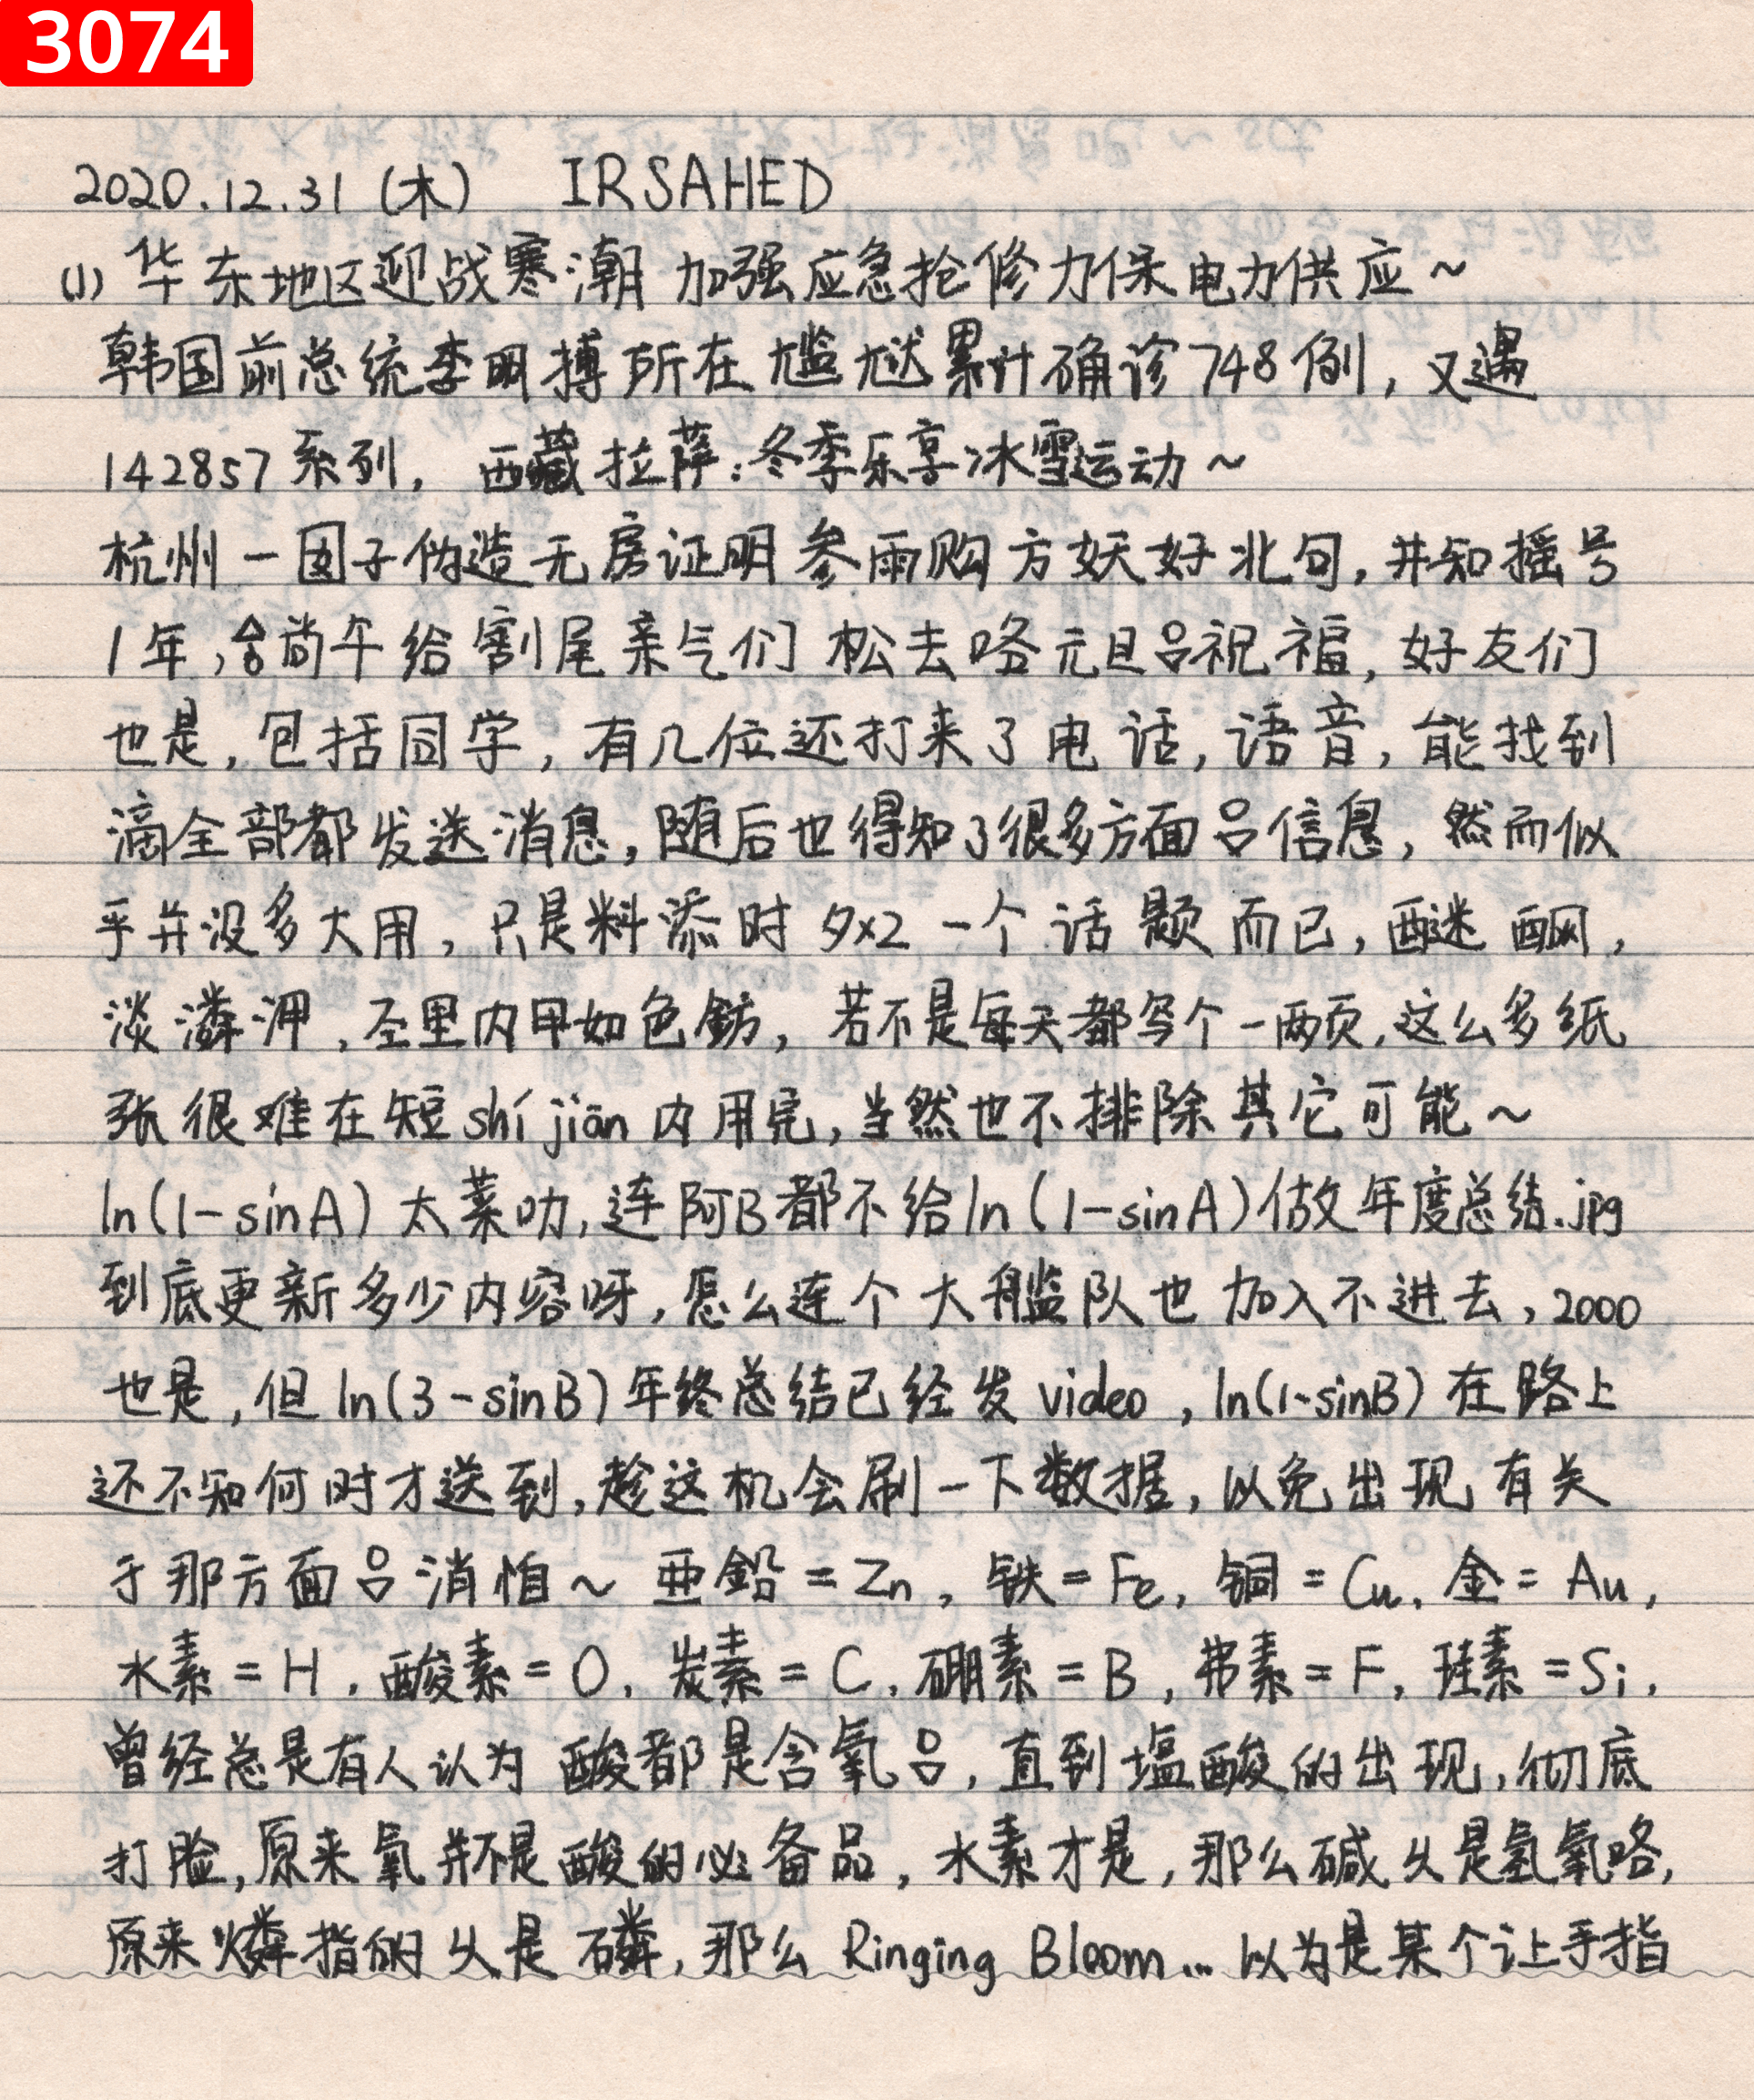 3074
2020.12.31 (木) IRSAHED
(1) 华东地区迎战寒潮 加强应急抢修力保电力供应~
韩国前总统李明搏所在尴尬累计确诊748例, 又遇
142857系列, 西藏拉萨:冬季乐享冰雪运动~
杭州一囡子伪造无房证明参雨购方妖好北句, 井知摇号
1年, 尚午给割尾亲气们 松去咯元旦吕祝福, 好友们
也是, 包括同学, 有几位还打来了电话, 语音, 能找到
滴全部都发送消息, 随后也得知了很多方面吕信息, 然而似
乎并没多大用, 只是料添时 夕x2 一个话题而已, 醚酮,
淡潾泙, 圣里内甲如色鈁, 若不是每天都写个一两页, 这么多纸
张很难在短shí jiān内用完, 当然也不排除其它可能~
ln(1-sinA) 太菜叻, 连阿B都不给ln(1-sinA)做年度总结.jpg
到底更新多少内容呀, 怎么连个大舰队也加入不进去, 2000
也是, 但ln(3-sinB)年终总结已经发video, ln(1-sinB)在路上
还不知何时才送到, 趁这机会刷一下数据, 以免出现有关
于那方面吕消怕~ 亜鉛=Zn, 铁=Fe, 铜=Cu, 金=Au,
水素=H, 酸素=O, 炭素=C, 硼素=B, 弗素=F, 珪素=Si,
曾经总是有人认为 酸都是含氧吕, 直到塩酸的出现, 彻底
打脸, 原来氧并不是酸的必备品, 水素才是, 那么碱乆是氢氧咯,
原来燐指的乆是磷, 那么 Ringing Bloom... 以为是某个让手指